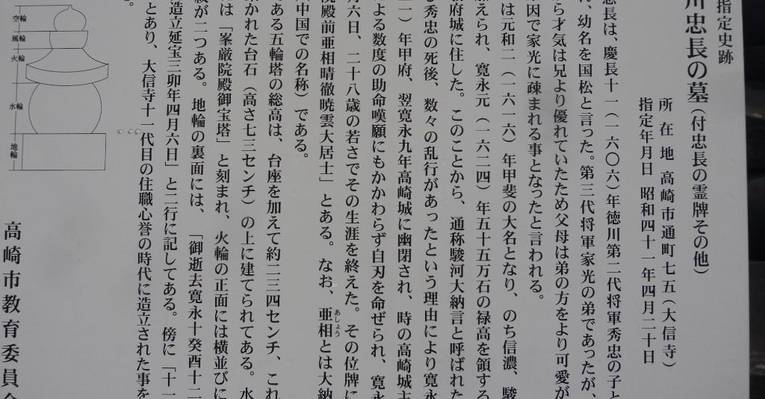 指定史跡
川忠長の墓（付忠長の霊牌その他）
所在地 高崎市通町七五（大信寺）
指定年月日 昭和四十一年四月二十日
忠長は、慶長十一（一六〇六）年徳川第二代将軍秀忠の子と
、幼名を国松と言った。第三代将軍家光の弟であったが、
ら才気は兄より優れていたため父母は弟の方をより可愛が
因で家光に疎まれる事となったと言われる。
は元和二（一六一六）年甲斐の大名となり、のち信濃、駿
えられ、寛永元（一六二四）年五十五万石の禄高を領する
府城に住した。このことから、通称駿河大納言と呼ばれた
る秀忠の死後、数々の乱行があったという理由により寛永
一）年甲府、翌寛永九年高崎城に幽閉され、時の高崎城主
よる数度の助命嘆願にもかかわらず自刃を命ぜられ、寛永
月六日、二十八歳の若さでその生涯を終えた。その位牌に
院殿前亜相晴徹暁雲大居士」とある。なお、亜相とは大納
あしょう
中国での名称）である。
ある五輪塔の総高は、台座を加えて約二三四センチ、これ
かれた台石（高さ七三センチ）の上に建てられてある。水
は「峯厳院殿御宝塔」と刻まれ、火輪の正面には横並びに
紋が二つある。地輪の裏面には、「御逝去寛永十癸酉十二
造立延宝三卯年四月六日」と二行に記してある。傍に「十一
とあり、大信寺十一代目の住職心誉の時代に造立された事を
。
高崎市教育委員会
空輪
風輪
火輪
水輪
地輪